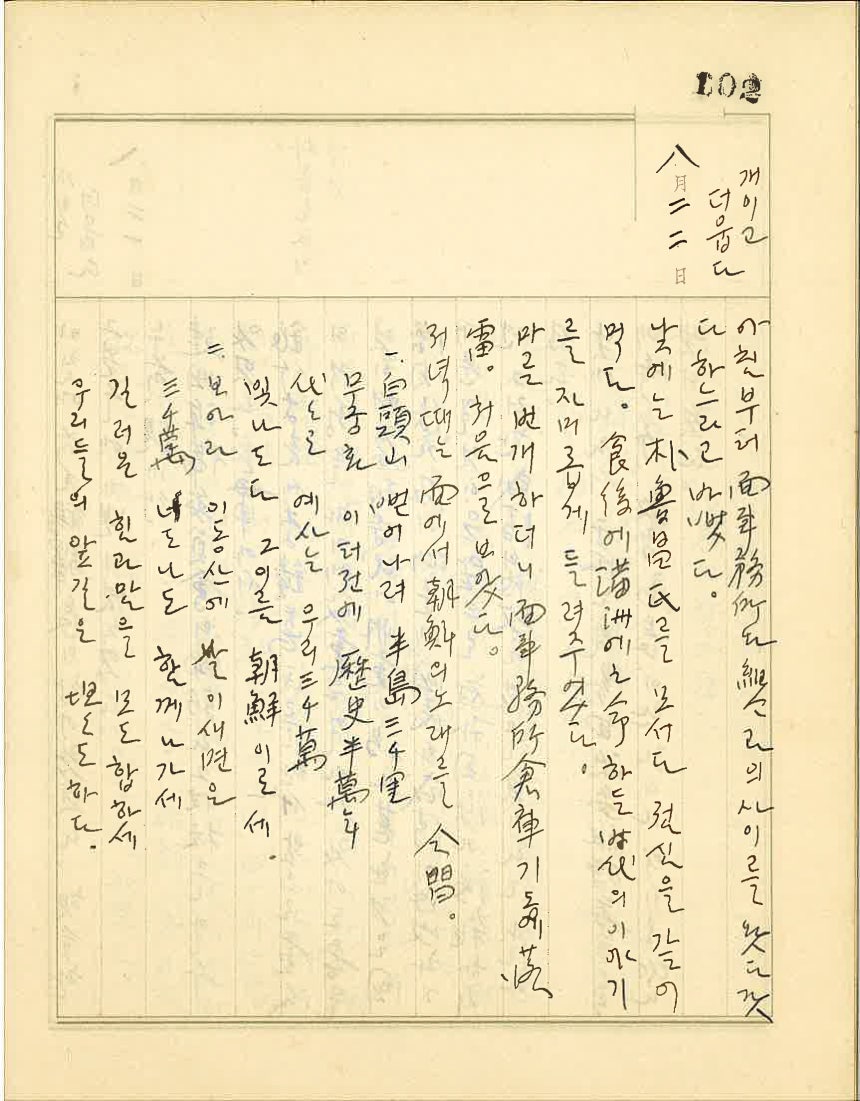 102
개이고
더웁다
八月二二日
아침부터 面事務所와 組合과의 사이를 왓다갓
다 하느라고 바빳다.
낮에는 朴魯 氏를 모셔다 점심을 갗이
먹다. 食後에 滿洲에 革命하든 時代의 이야기
를 자미롭게 들려주엇다.
마른 번개하더니 面事務所 倉庫 기둥에 落
雷. 처음으로 보앗다.
저녁때는 面에서 朝鮮의 노래를 今聞.
一. 白頭山 뻗어나려 半島三千里
무궁화 이 터전에 歷史半萬年
代代로 예사는 우리 三千萬
빛나도다 그 이름 朝鮮이로세.
二. 보아라 이 동산에 밤이 새면은
三千萬 너도나도 함께 나가세
길러온 힘과 맘을 모도 합하세
우리들의 앞길은 탄도도 하다.